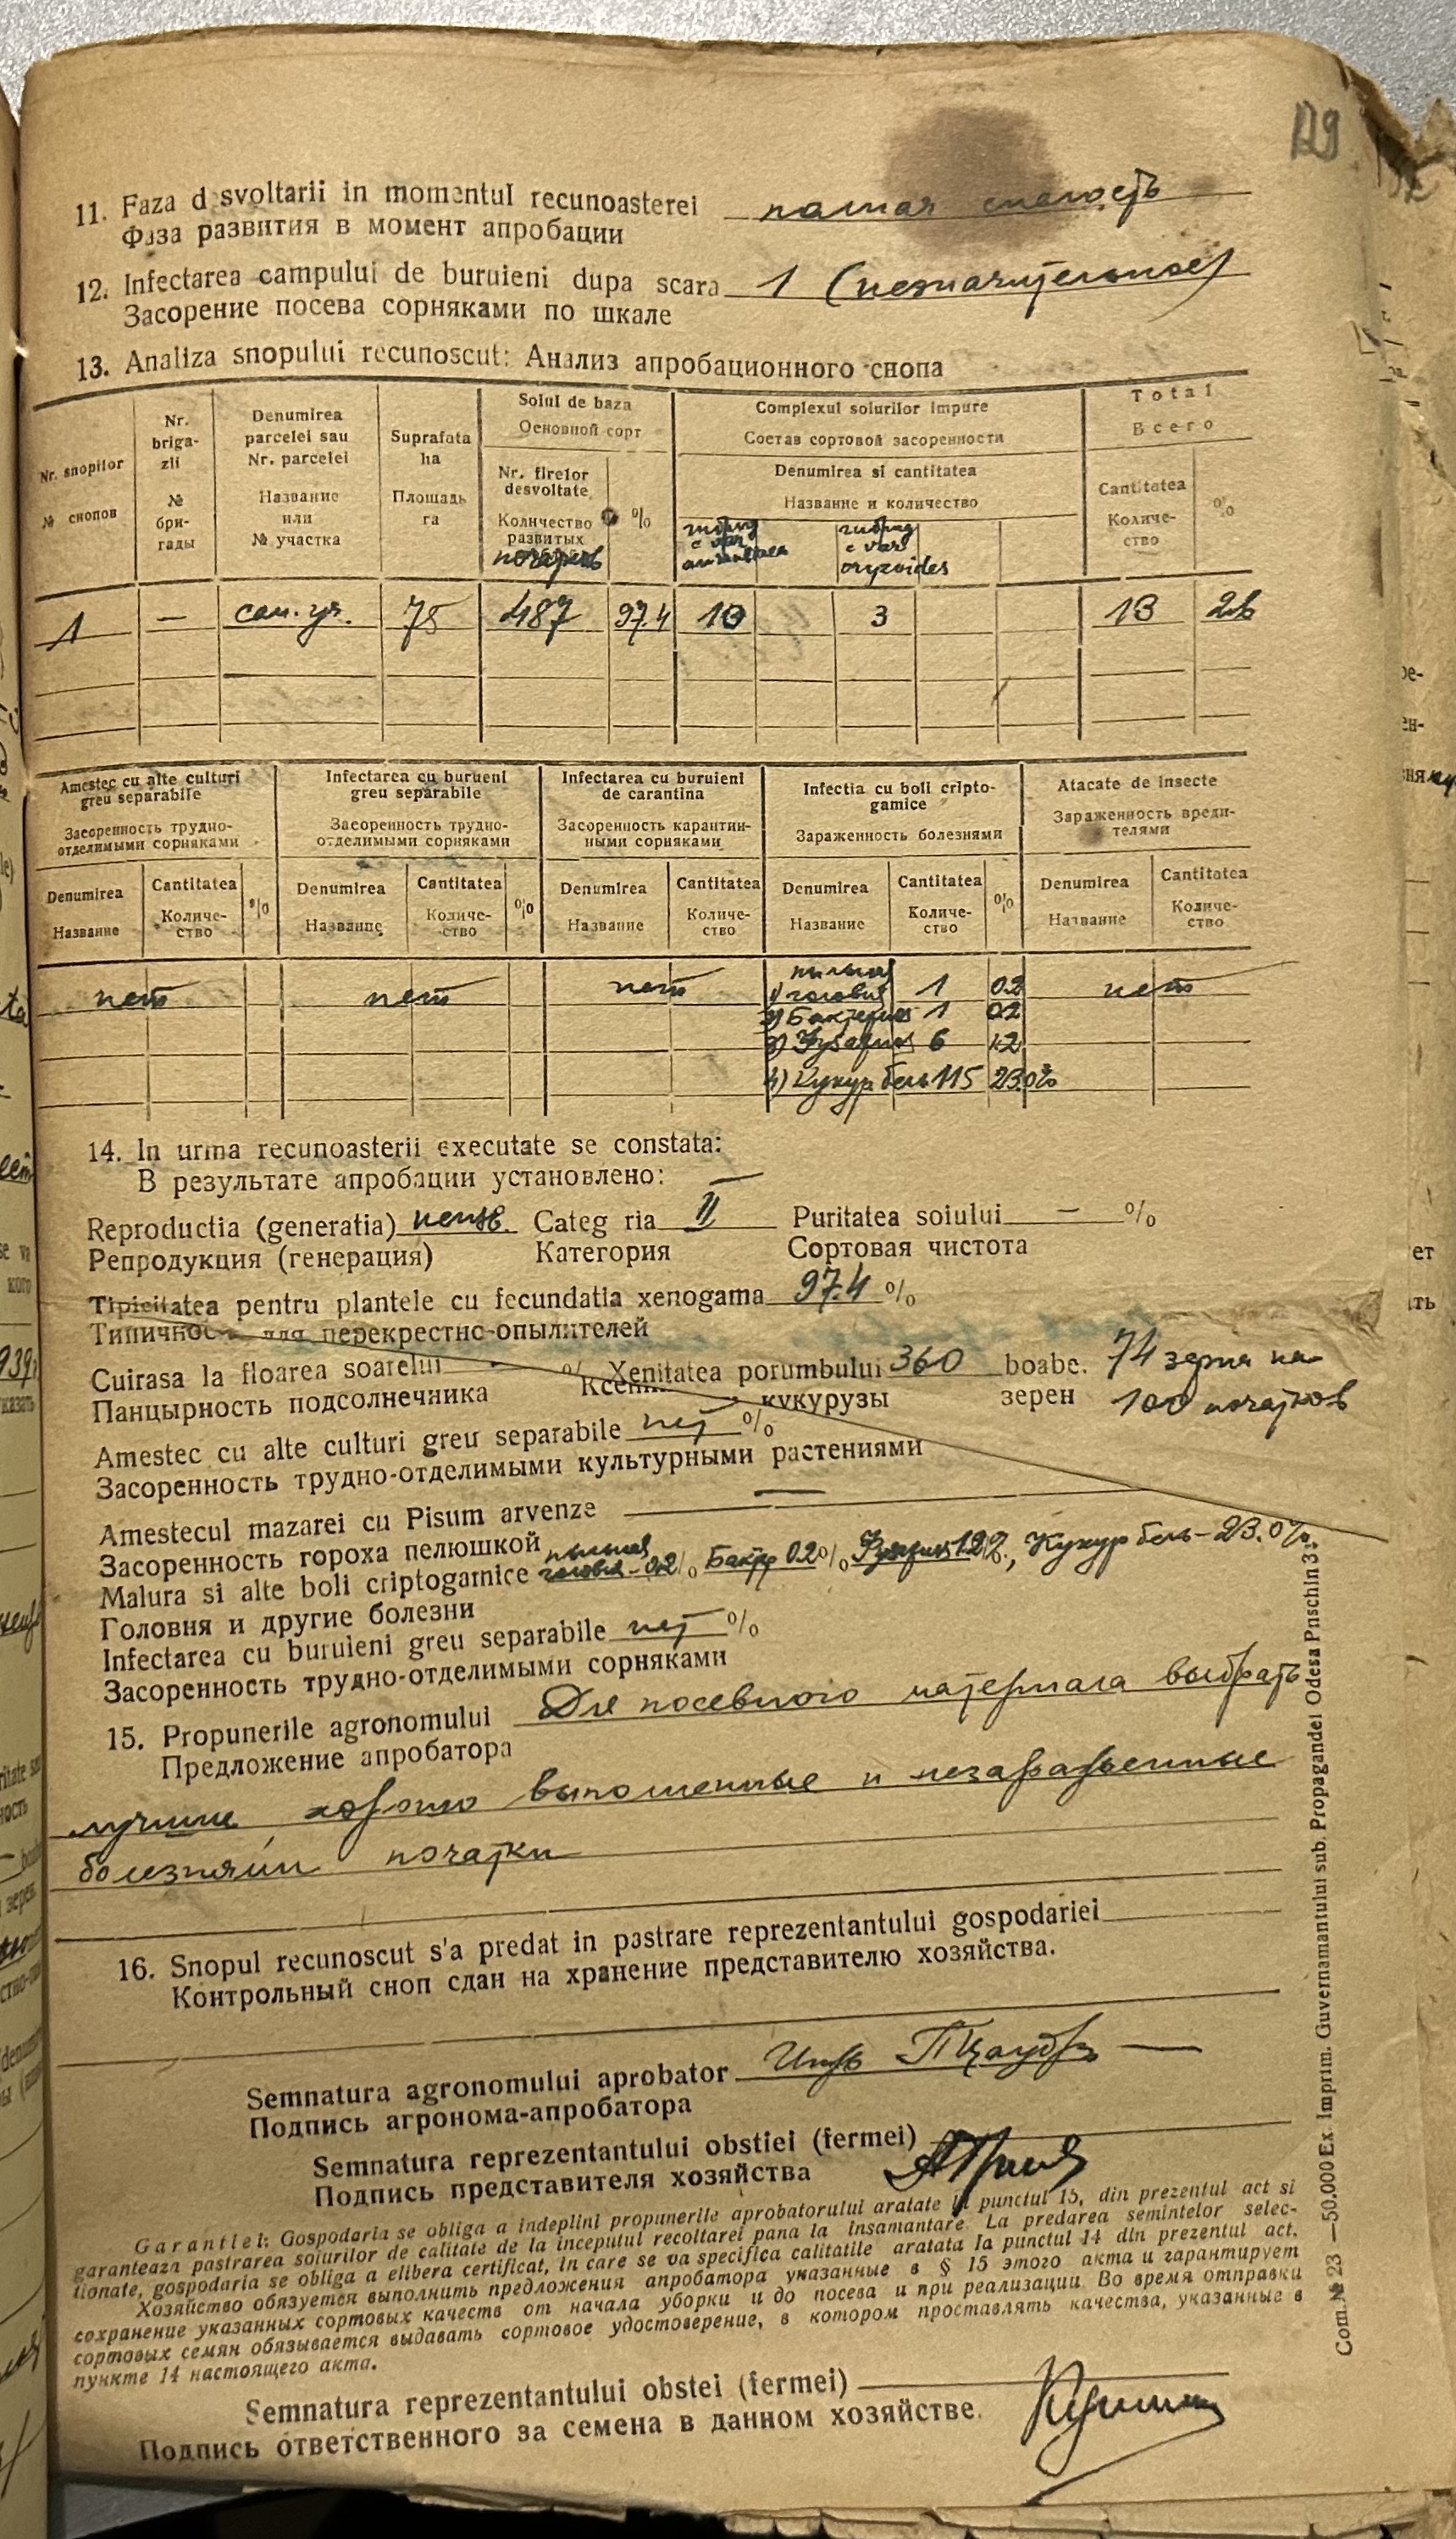 129
11. Faza d svoltarii in momentul recunoasterei полная спелость
Фаза развития в момент апробации
12. Infectarea campului de buruieni dupa scara 1 (незначительное)
Засорение посева сорняками по шкале
13. Analiza snopului recunoscut: Анализ апробационного снопа
Nr. snopilor
№ снопов
Nr. briga-zii
№ бри-гады
Denumirea parcelei sau Nr. parcelei
Название или № участка
Suprafata ha
Площадь га
Soiul de baza
Основной сорт
Nr. firelor desvoltate
Количество развитых початков
%
Complexul soiurilor impure
Состав сортовой засоренности
Denumirea si cantitatea
Название и количество
гибрид с var
гибрид с var oryzoides
Total
Всего
Cantitatea
Количе-ство
%
1 — сем. уч. 75 487 97.4 10 3 13 2.6
Amestec cu alte culturi greu separabile
Засоренность трудно-отделимыми сорняками
Infectarea cu burueni greu separabile
Засоренность трудно-отделимыми сорняками
Infectarea cu buruieni de carantina
Засоренность карантин-ными сорняками
Infectia cu boli cripto-gamice
Зараженность болезнями
Atacate de insecte
Зараженность вреди-телями
Denumirea Cantitatea % Denumirea Cantitatea % Denumirea Cantitatea Denumirea Cantitatea % Denumirea Cantitatea
Название Количе-ство Название Количе-ство Название Количе-ство Название Количе-ство Название Количе-ство
нет нет нет 1) пыльная головня 1 0.2 нет
2) Бактериоз 1 0.2
3) Фузариоз 6 1.2
4) Кукур бель 115 23.0%
14. In urma recunoasterii executate se constata:
В результате апробации установлено:
Reproductia (generatia) неизв. Categ ria II Puritatea soiului — %
Репродукция (генерация) Категория Сортовая чистота
Tipicitatea pentru plantele cu fecundatia xenogama 97.4 %
Типичность для перекрестно-опылителей
Cuirasa la floarea soarelui % Xenitatea porumbului 360 boabe. 74 зерна на
Панцырность подсолнечника Ксени кукурузы зерен 100 початков
Amestec cu alte culturi greu separabile нет %
Засоренность трудно-отделимыми культурными растениями
Amestecul mazarei cu Pisum arvenze —
Засоренность гороха пелюшкой
Malura si alte boli criptogamice пыльная головня - 0.2 % Бактер 0.2 % Фузариоз 1.2%, Кукур бель - 23.0%
Головня и другие болезни
Infectarea cu buruieni greu separabile нет %
Засоренность трудно-отделимыми сорняками
15. Propunerile agronomului Для посевного материала выбрать
Предложение апробатора
лучшие хорошо выполненные и незараженные
болезнями початки
16. Snopul recunoscut s'a predat in pastrare reprezentantului gospodariei
Контрольный сноп сдан на хранение представителю хозяйства.
Semnatura agronomului aprobator
Подпись агронома-апробатора
Semnatura reprezentantului obstiei (fermei)
Подпись представителя хозяйства
Garantiei: Gospodaria se obliga a indeplini propunerile aprobatorului aratate la punctul 15, din prezentul act si
garanteaza pastrarea soiurilor de calitate de la inceputul recoltarei pana la insamantare. La predarea semintelor selec-
tionate, gospodaria se obliga a elibera certificat, in care se va specifica calitatile aratata la punctul 14 din prezentul act.
Хозяйство обязуется выполнить предложения апробатора указанные в § 15 этого акта и гарантирует
сохранение указанных сортовых качеств от начала уборки и до посева и при реализации. Во время отправки
сортовых семян обязывается выдавать сортовое удостоверение, в котором проставлять качества, указанные в
пункте 14 настоящего акта.
Semnatura reprezentantului obstei (fermei)
Подпись ответственного за семена в данном хозяйстве.
Com. № 23 —50.000 Ex. Imprim. Guvernamantului sub. Propagandei Odesa Pușchin 3